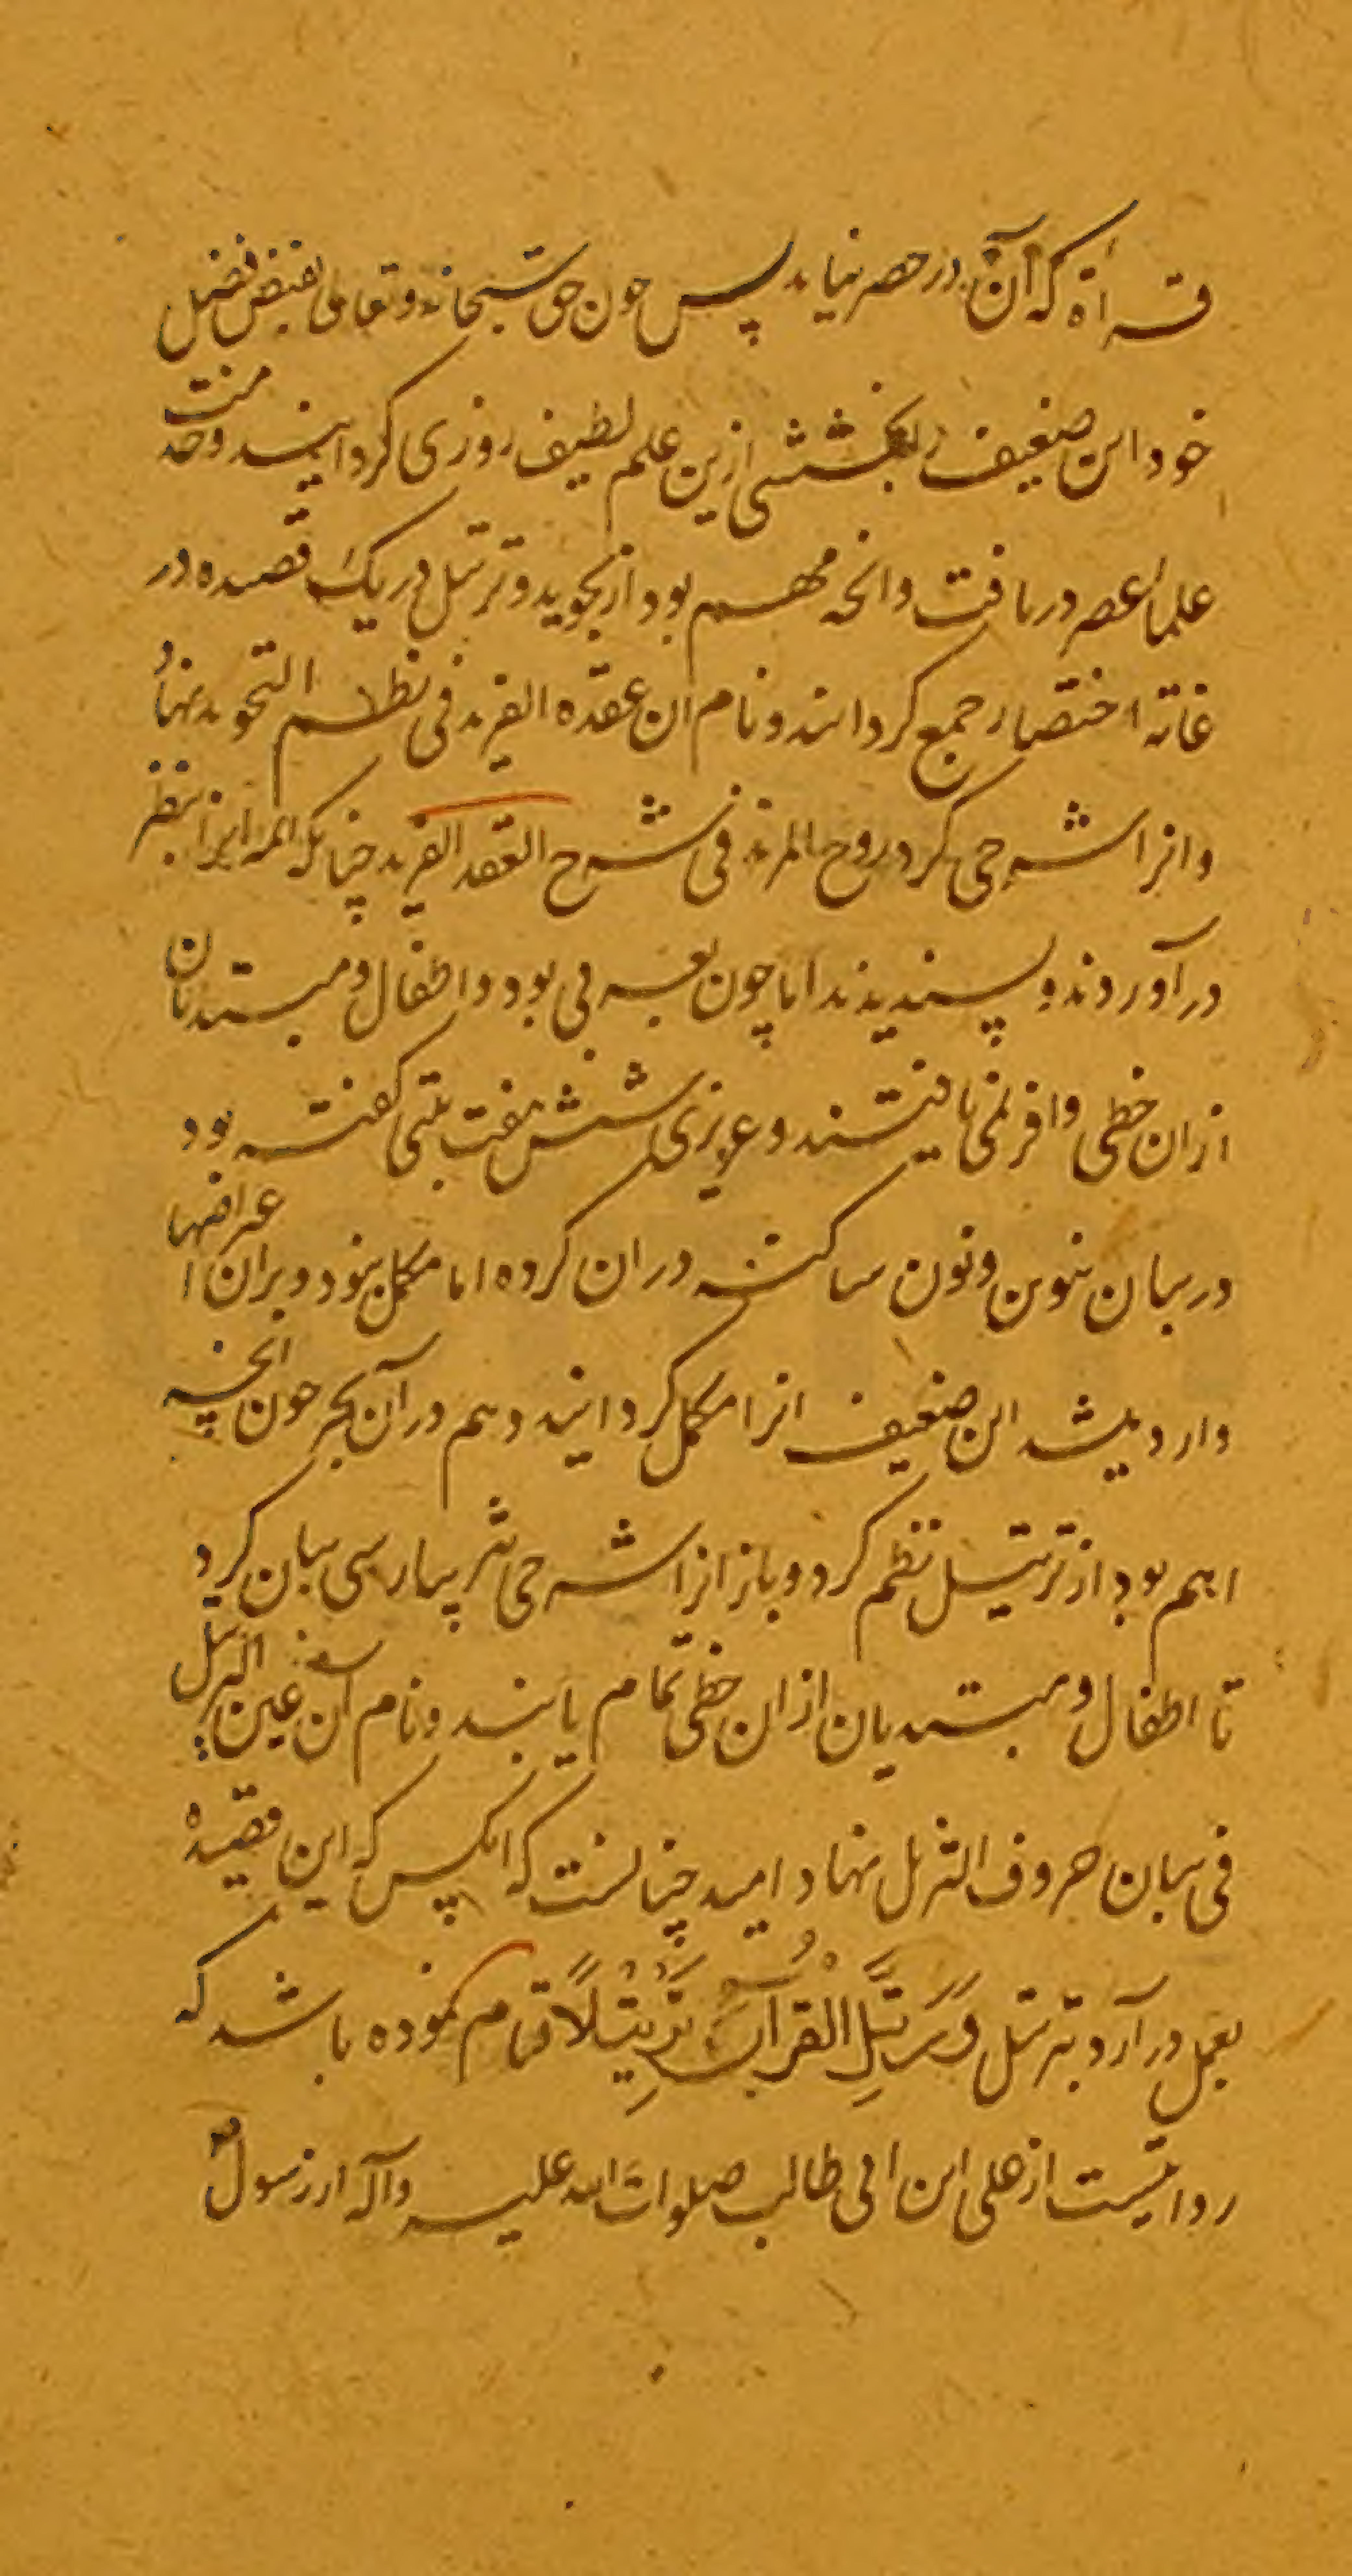 قرأة که آن در حصر نیاید پس چون حق سبحانه و تعالی بفیض فضل
خود این ضعیف را بخششی ازین علم لطیف روزی کردانید و خدمت
علماء عصر دریافت وانچه مهم بود از تجوید و ترتیل در یک قصیده در
غایة اختصار جمع کردانید و نام ان عقدة الفرید فی نظم التجوید نهاد
وانرا شرحی کرد روح المرید فی شرح العقد الفرید چنانکه ائمه انرا بنظر
در آوردند و پسندیدند اما چون بعربی بود و اطفال و مبتدیان
ازان حظی وافر نمی یافتند و عزیزی شش هفت بیتی کفته بود
در بیان تنوین و نون ساکنه دران کرده اما مکمل نبود و بران اعتراضها
وارد میشد این ضعیف انرا مکمل کردانید و هم در آن بحر چون انچه
اهم بود از ترتیل نظم کرد و باز انرا شرحی نثر پپارسی بیان کرد
تا اطفال و مبتدیان ازان حظی تمام یابند و نام آن عین الترتیل
فی بیان حروف التنزیل نهاد امید چنانست که انکس که این قصیده
بعمل در آرد بترتیل وَرَتِّلِ الْقُرْآنَ تَرْتِيلًا قیام نموده باشد که
روایتست از علی ابن ابی طالب صلوات الله علیه و آله از رسول